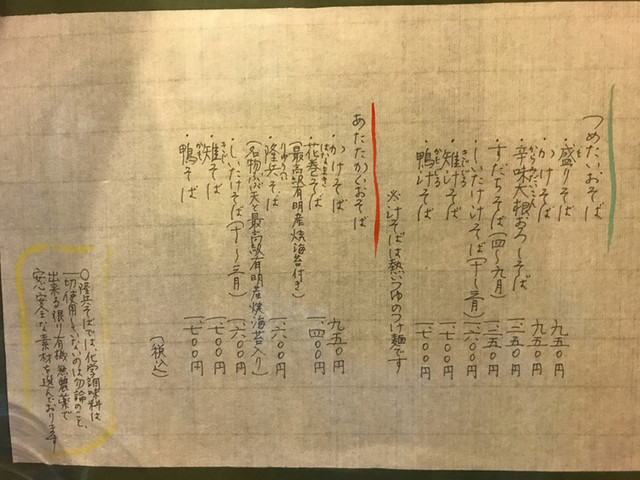 つめたいおそば
・盛りそば 九五〇円
・かけそば 九五〇円
・辛味大根おろしそば 一、二五〇円
・すだちそば(四〜九月) 一、二五〇円
・しいたけ汁そば(十〜三月) 一、六〇〇円
・雉汁そば 一、七〇〇円
・鴨汁そば 一、七〇〇円
※汁そばは熱いつゆのつけ麺です
あたたかいおそば
・かけそば 九五〇円
・花巻そば 一、四〇〇円
(最高級有明産焼海苔付き)
・隆兵そば
(名物 天と最高級有明産焼海苔入り)
・しいたけそば(十〜三月) 一、六〇〇円
・雉そば 一、七〇〇円
・鴨そば 一、七〇〇円
(税込)
〇隆兵そばでは、化学調味料は
一切使用していないのは勿論のこと、
出来る限り有機無農薬で
安心安全な素材を選んでおります